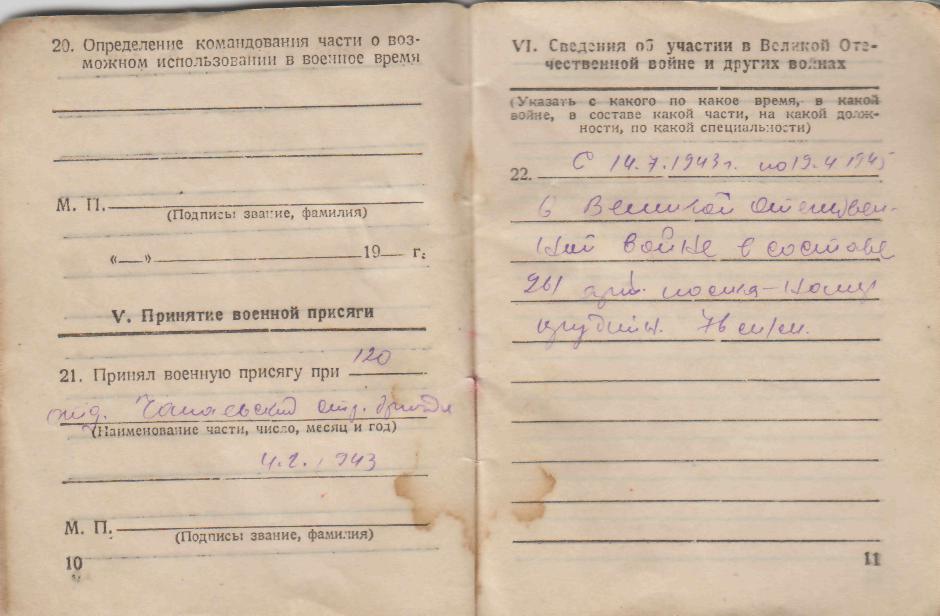 20. Определение командования части о воз-
можном использовании в военное время
М. П.
(Подписы звание, фамилия)
« » 19 г.
V. Принятие военной присяги
120
21. Принял военную присягу при
Чапаевский стр. бригады
(Наименование части, число, месяц и год)
4.2.1943
М. П.
(Подписы звание, фамилия)
10
VI. Сведения об участии в Великой Оте-
чественной войне и других войнах
(Указать с какого по какое время, в какой
войне, в составе какой части, на какой долж-
ности, по какой специальности)
22. С 14.7.1943г. по 19.4 1945
в Великой Отечествен-
ной войне в составе
261 арт. полка-кома
орудия. 76 м/м.
11